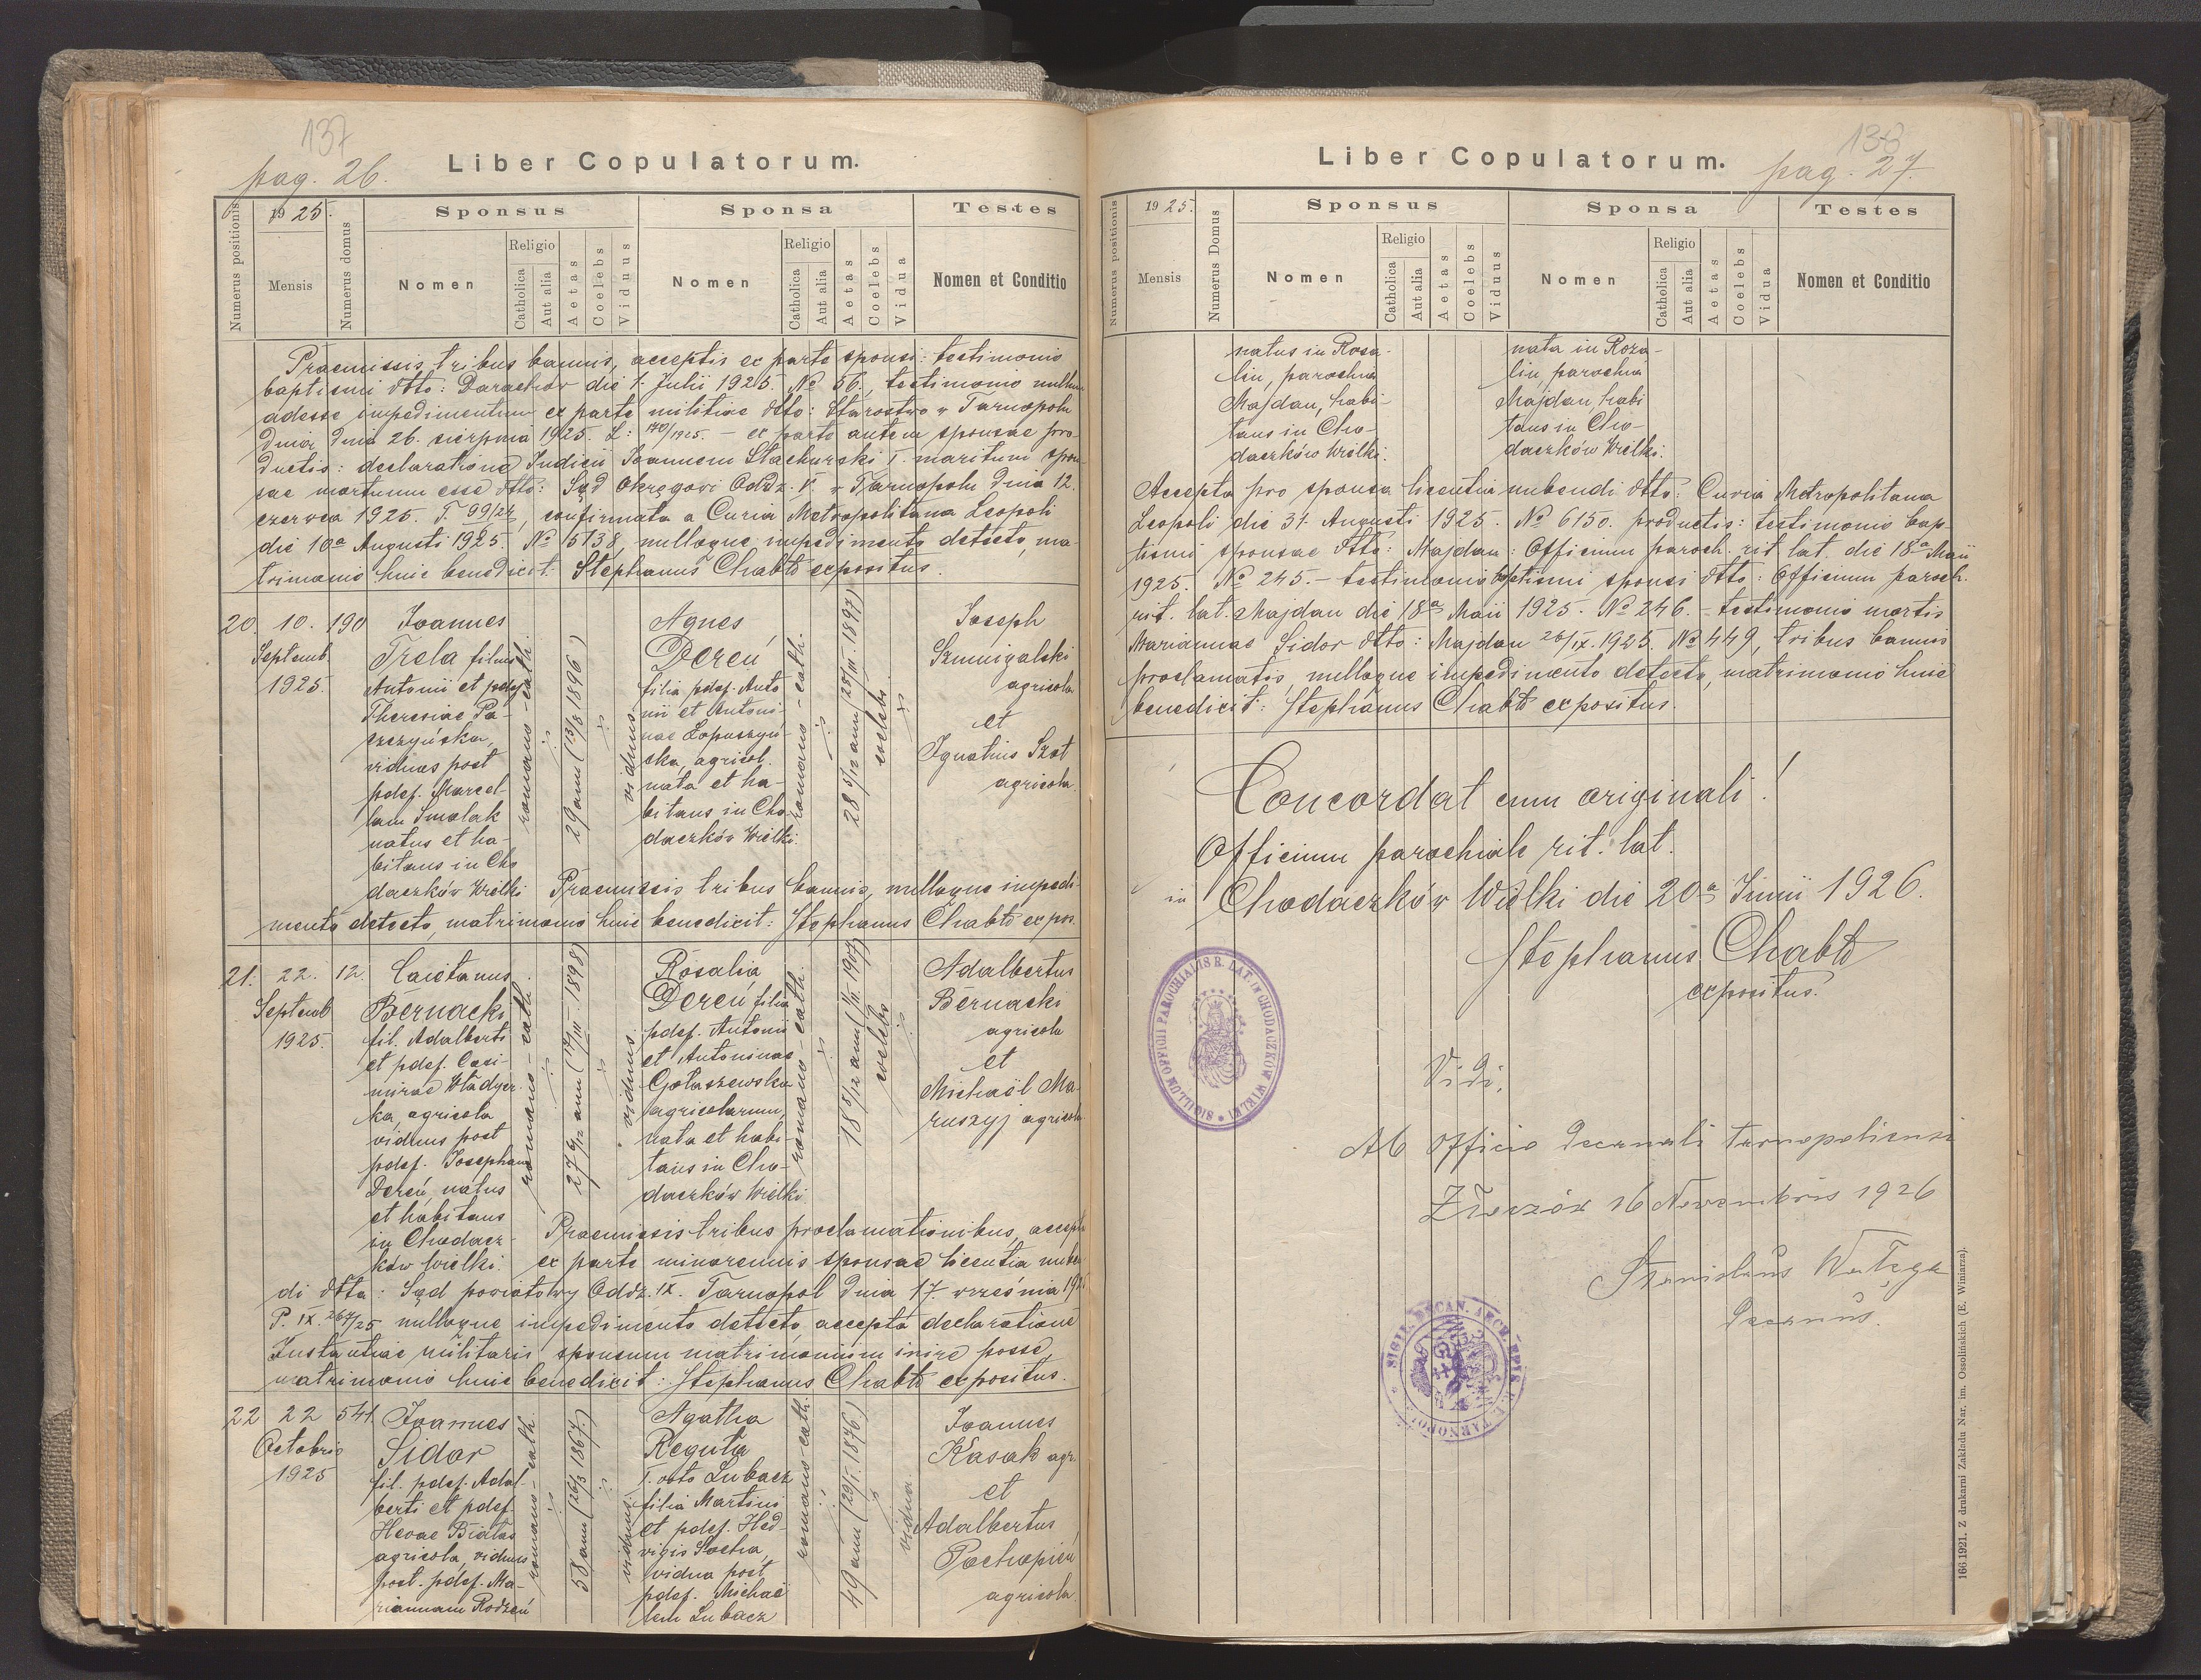 137
pag. 26.
Liber Copulatorum.
Numerus positionis
1925.
Mensis
Numerus domus
Sponsus
Nomen
Religio
Catholica
Aut alia
Aetas
Coelebs
Viduus
Sponsa
Nomen
Religio
Catholica
Aut alia
Aetas
Coelebs
Vidua
Testes
Nomen et Conditio
Praemissis tribus bannis, acceptis ex parte sponsi: testimonio
baptismi dtto: Darachów die 1. Julii 1925. No 56., testimonio nullum
adesse impedimentum ex parte militiae dtto: Starostwo w Tarnopolu
dnia 26. sierpnia 1925. L: 170/1925. - ex parte autem sponsae pro-
ductis: declaratione Judicii Joannem Stachurski I. maritum spon-
sae mortuum esse dtto: Sąd Okręgowi Oddz. V. w Tarnopolu dnia 12.
czerwca 1925. T. 99/24, confirmata a Curia Metropolitana Leopoli
die 10a Augusti 1925. No 5138, nulloque impedimento detecto, ma-
trimonio huic benedicit: Stephanus Chabło expositus.
20. 10. 190
Septemb.
1925.
Joannes
Trela filius
Antonii et pdef.
Theresiae Pa-
szczyńska,
viduus post
pdef. Marcel-
lam Smolak
natus et ha-
bitans in Cho
daczków Wielki
romano-cath.
29 ann (13/8 1896)
viduus
Agnes
Dereń
filia pdef. Anto
nii et Antoni-
nae Łopuszyń-
ska, agricol.
nata et ha-
bitans in Cho
daczków Wielki.
romano-cath.
28 5/12 ann (28/III. 1897)
coelebs
Joseph
Szmigalski
agricola
et
Ignatius Szot
agricola.
Praemissis tribus bannis, nulloque impedi-
mento detecto, matrimonio huic benedicit: Stephanus Chabło expos.
21. 22. 12.
Septemb
1925.
Caietanus
Bernacki
fil. Adalberti
et pdef. Casi-
mirae Władycz-
ka, agricola
viduus post
pdef. Josepham
Dereń, natus
et habitans
in Chodacz-
ków Wielki.
romano-cath.
27 6/12 ann (17/III. 1898)
viduus
Rosalia
Dereń filia
pdef. Antonii
et Antoninae
Gołaszewska
agricolarum,
nata et habi-
tans in Cho-
daczków Wielki
romano-cath.
coelebs
Adalbertus
Bernacki
agricola
et
Michaël Ma-
ruszyj agricola
Praemissis tribus proclamationibus, accepta
ex parte minorennis sponsae licentia nuben-
di dtta: Sąd powiatowy Oddz. IX. Tarnopol dnia 17. września 1925.
P. IX. 267/25 nulloque impedimento detecto, accepta declaratione
Instantiae militaris sponsum matrimonium inire posse,
matrimonio huic benedicit: Stephanus Chabło expositus.
22 22 541.
Octobris
1925
Joannes
Sidor
fil. pdef. Adal-
berti et pdef.
Hevae Białas
agricola, viduus
post. pdef. Ma-
riannam Rodzeń
romano-cath.
58 ann (26/3 1867.)
viduus
Agatha
Reguła
I. voto Lubacz
filia Martini
et pdef. Hed-
vigis Socha,
vidua post
pdef. Michaë
lem Lubacz
romano-cath.
49 ann (29/I. 1876.)
vidua
Joannes
Kasak agr.
et
Adalbertus
Pochopień
agricola
138
pag. 27.
Liber Copulatorum.
Numerus positionis
1925.
Mensis
Numerus Domus
Sponsus
Nomen
Religio
Catholica
Aut alia
Aetas
Coelebs
Viduus
Sponsa
Nomen
Religio
Catholica
Aut alia
Aetas
Coelebs
Vidua
Testes
Nomen et Conditio
natus in Rosa-
lin, parochia
Majdan, habi-
tans in Cho-
daczków Wielki.
nata in Roza-
lin, parochia
Majdan, habi
tans in Cho-
daczków Wielki.
Accepta pro sponsa licentia nubendi dtto: Curia Metropolitana
Leopoli die 31. Augusti 1925. No 6150. productis: testimonio bap-
tismi sponsae dtto: Majdan: Officium paroch. rit. lat. die 18a Maii
1925. No 245. - testimonio baptismi sponsi dtto: Officium paroch.
rit. lat. Majdan die 18a Maii 1925. No 246. - testimonio mortis
Mariannae Sidor dtto: Majdan 26/IX. 1925. No 449, tribus bannis
proclamatis, nulloque impedimento detecto, matrimonio huic
benedicit: Stephanus Chabło expositus.
Concordat cum originali!
Officium parochiale rit. lat.
in Chodaczków Wielki die 20a Junii 1926.
Stephanus Chabło
expositus.
SIGILLUM OFFICII PAROCHIALIS R. LAT. IN CHODACZKOW WIELKI
Vidi.
Ab Officio Decanali Tarnopoliensi
16 Novembris 1926
Stanislaus Wałęga
Decanus.
166.1921. Z drukarni Zakładu Nar. im. Ossolińskich (E. Winiarza).